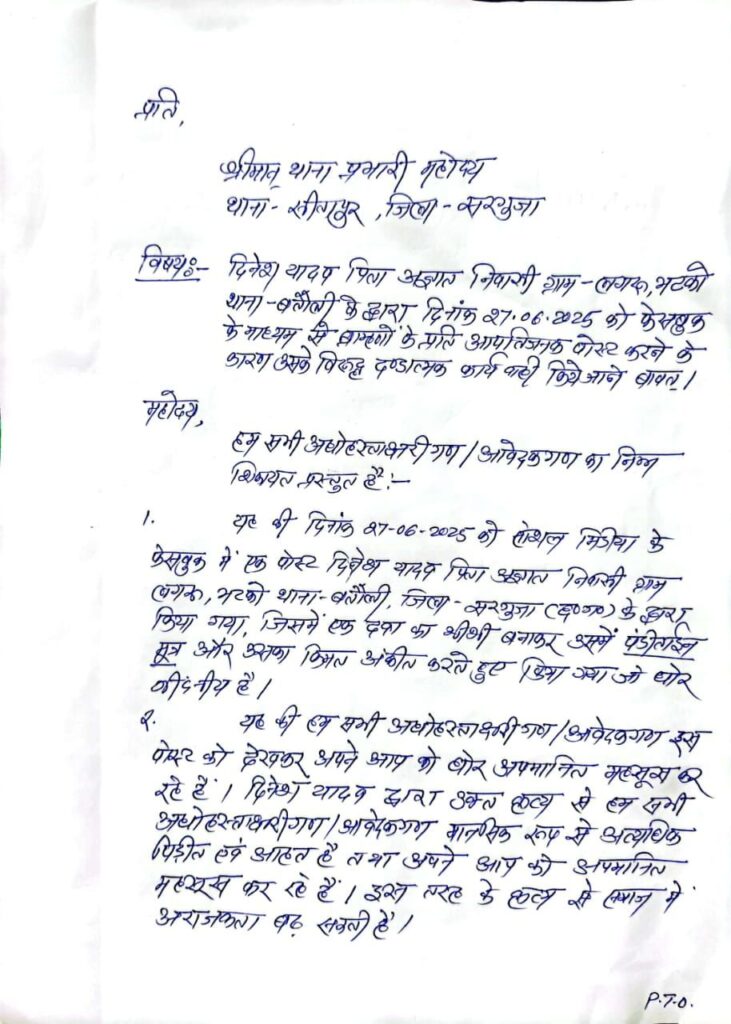 प्रति,
श्रीमान् थाना प्रभारी महोदय
थाना - सीतापुर, जिला - सरगुजा
विषय:- दिनेश यादव पिता अज्ञात निवासी ग्राम - भटको
थाना - बतौली के द्वारा दिनांक 27.06.2025 को फेसबुक
के माध्यम से ब्राम्हणों के प्रति आपत्तिजनक पोस्ट करने के
कारण उसके विरूद्ध दण्डात्मक कार्यवाही किये जाने बावत् ।
महोदय,
हम सभी अधोहस्ताक्षरीगण / आवेदकगण का निम्न
शिकायत प्रस्तुत है :-
1. यह की दिनांक 27-06-2025 को सोशल मिडिया के
फेसबुक में एक पोस्ट दिनेश यादव पिता अज्ञात निवासी ग्राम
भटको थाना - बतौली, जिला - सरगुजा (छ०ग०) के द्वारा
किया गया, जिसमें एक दवा का शीशी बनाकर उसमें पंडीताईन
मूत्र और उसका किमत अंकीत करते हुए किया गया जो घोर
नींदनीय है ।
2. यह की हम सभी अधोहस्ताक्षरीगण / आवेदकगण इस
पोस्ट को देखकर अपने आप को घोर अपमानित महसूस कर
रहे हैं । दिनेश यादव द्वारा उक्त कृत्य से हम सभी
अधोहस्ताक्षरीगण / आवेदकगण मानसिक रूप से अत्यधिक
पिड़ीत एवं आहत है तथा अपने आप को अपमानित
महसूस कर रहे हैं । इस तरह के कृत्य से समाज में
अराजकता बढ़ सकती है ।
P.T.O.